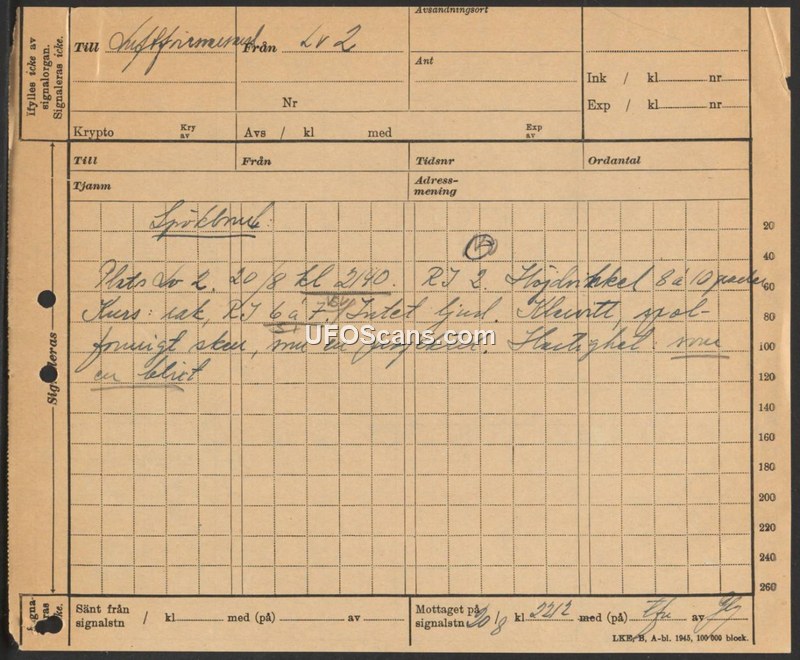 Avsändningsort
Ifylles icke av
signalorgan.
Signaleras icke.
Till Luftförsvaret Från Lv 2
Ant
Ink / kl nr
Nr
Exp / kl nr
Krypto Kry av Avs / kl med Exp av
Till Från Tidsnr Ordantal
Tjanm Adress-
mening
Spökbomb:
20
40
Plats Lv 2. 20/8 kl 2140. RI 2. Höjdvinkel 8 á 10 grader
60
Kurs: rak, RI 6 á 7. Intet ljud. Klart, spol-
80
formigt sken, som en projektil. Hastighet: som
100
en blixt
120
Signaleras
140
160
180
200
220
240
260
UFOScans.com
Signa-
leras
icke.
Sänt från
signalstn / kl med (på) av
Mottaget på
signalstn 20/8 kl 2212 med (på) tfn av
LKE, B, A-bl. 1945, 100 000 block.